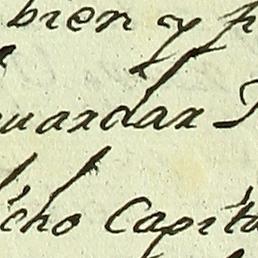 bien y p
uardar
icho Capita